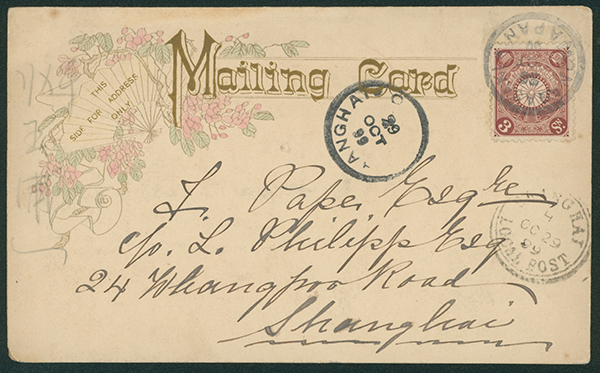 Mailing Card
THIS
SIDE FOR ADDRESS
ONLY
JAPAN
3
SHANGHAI
29
OCT
99
F. Pape Esqre
c/o. L. Philipp Esq
24 Whangpoo Road
Shanghai
SHANGHAI
4
OC 29
99
LOCAL POST